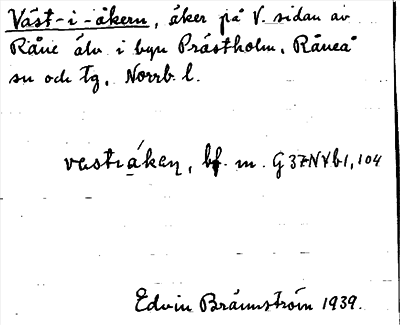 Väst-i-åkern, åker på V. sidan av
Råne älv i byn Prästholm, Råneå
sn och tg, Norrb. l.
västiåkeṇ, bf. m. G37NYb1,104
Edvin Brännström 1939.